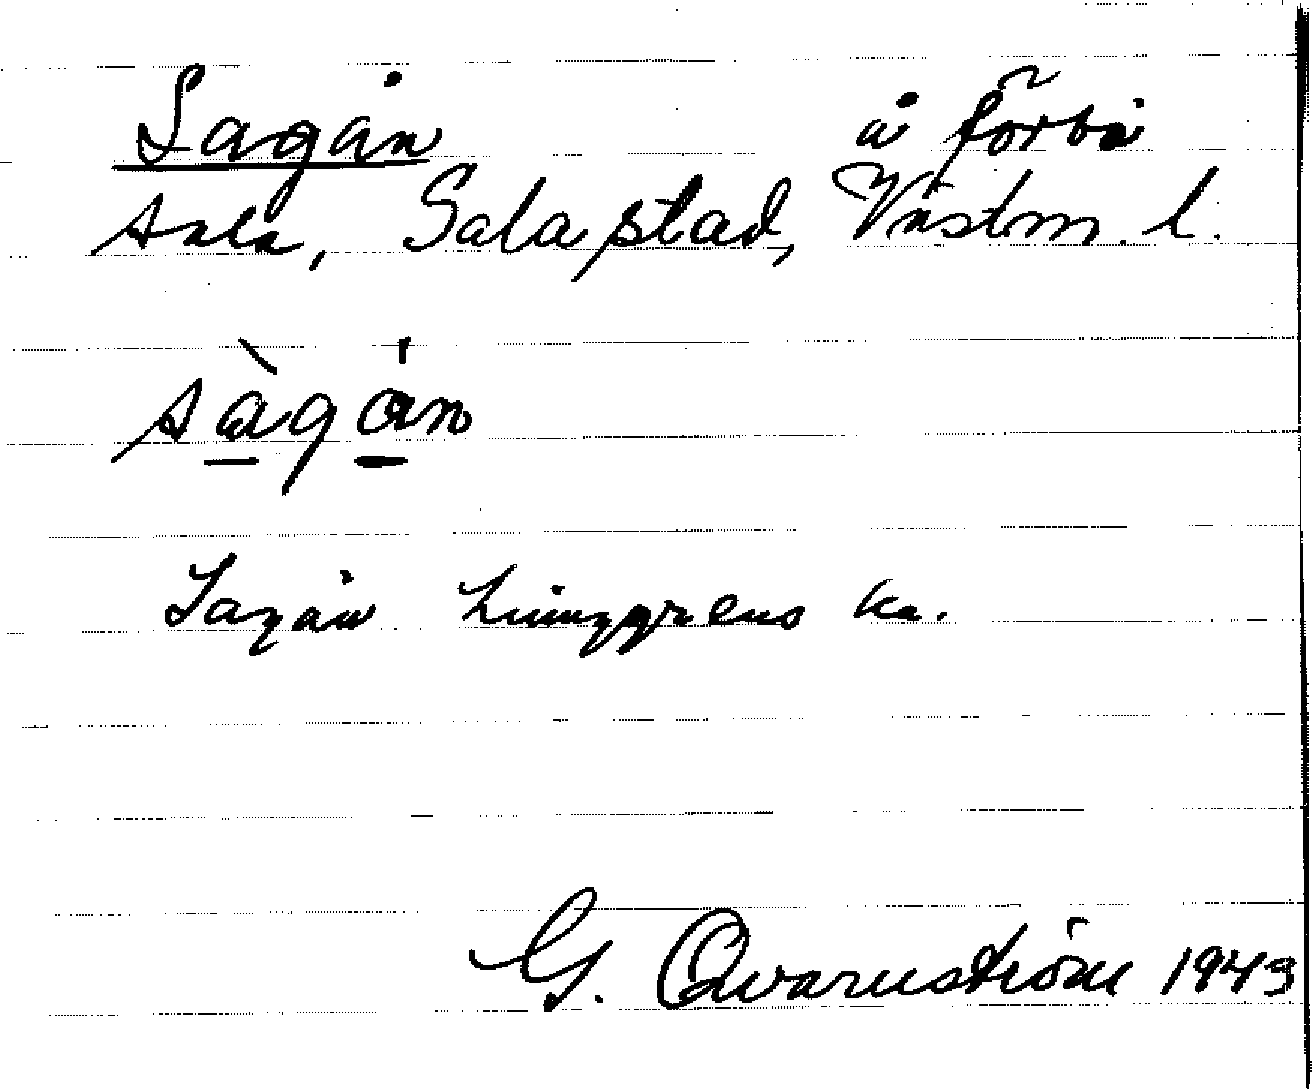 Sagån å förbi
Sala, Sala stad, Västm. l.
sàgån
Sagån Ljunggrens ka.
G. Qvarnström 1943